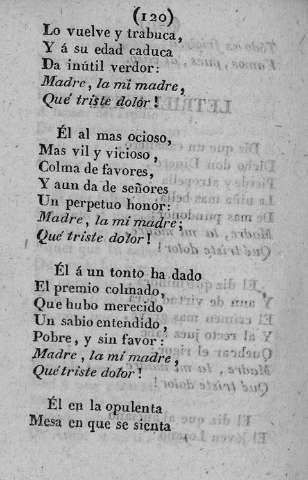 (120)
Lo vuelve y trabuca,
Y á su edad caduca
Da inútil verdor:
Madre, la mi madre,
Qué triste dolor!
Él al mas ocioso,
Mas vil y vicioso,
Colma de favores,
Y aun da de señores
Un perpetuo honor:
Madre, la mi madre;
Qué triste dolor!
Él á un tonto ha dado
El premio colmado,
Que hubo merecido
Un sabio entendido,
Pobre, y sin favor:
Madre, la mi madre,
Qué triste dolor!
Él en la opulenta
Mesa en que se sienta